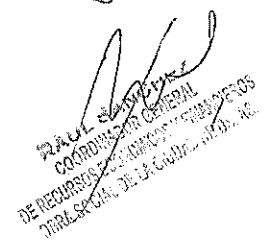 RAUL SANCHEZ
COORDINADOR GENERAL
DE RECURSOS ECONOMICOS Y FINANCIEROS
OBRA SOCIAL DE LA